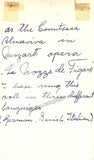 as the Comtessa
Almaviva in
Mozarts opera
"Le Nozze de Figaro"
I have sung this
roll in three different
languages
(German, Danish, Italian)